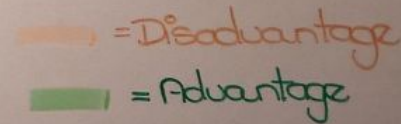 = Disadvantage
= Advantage